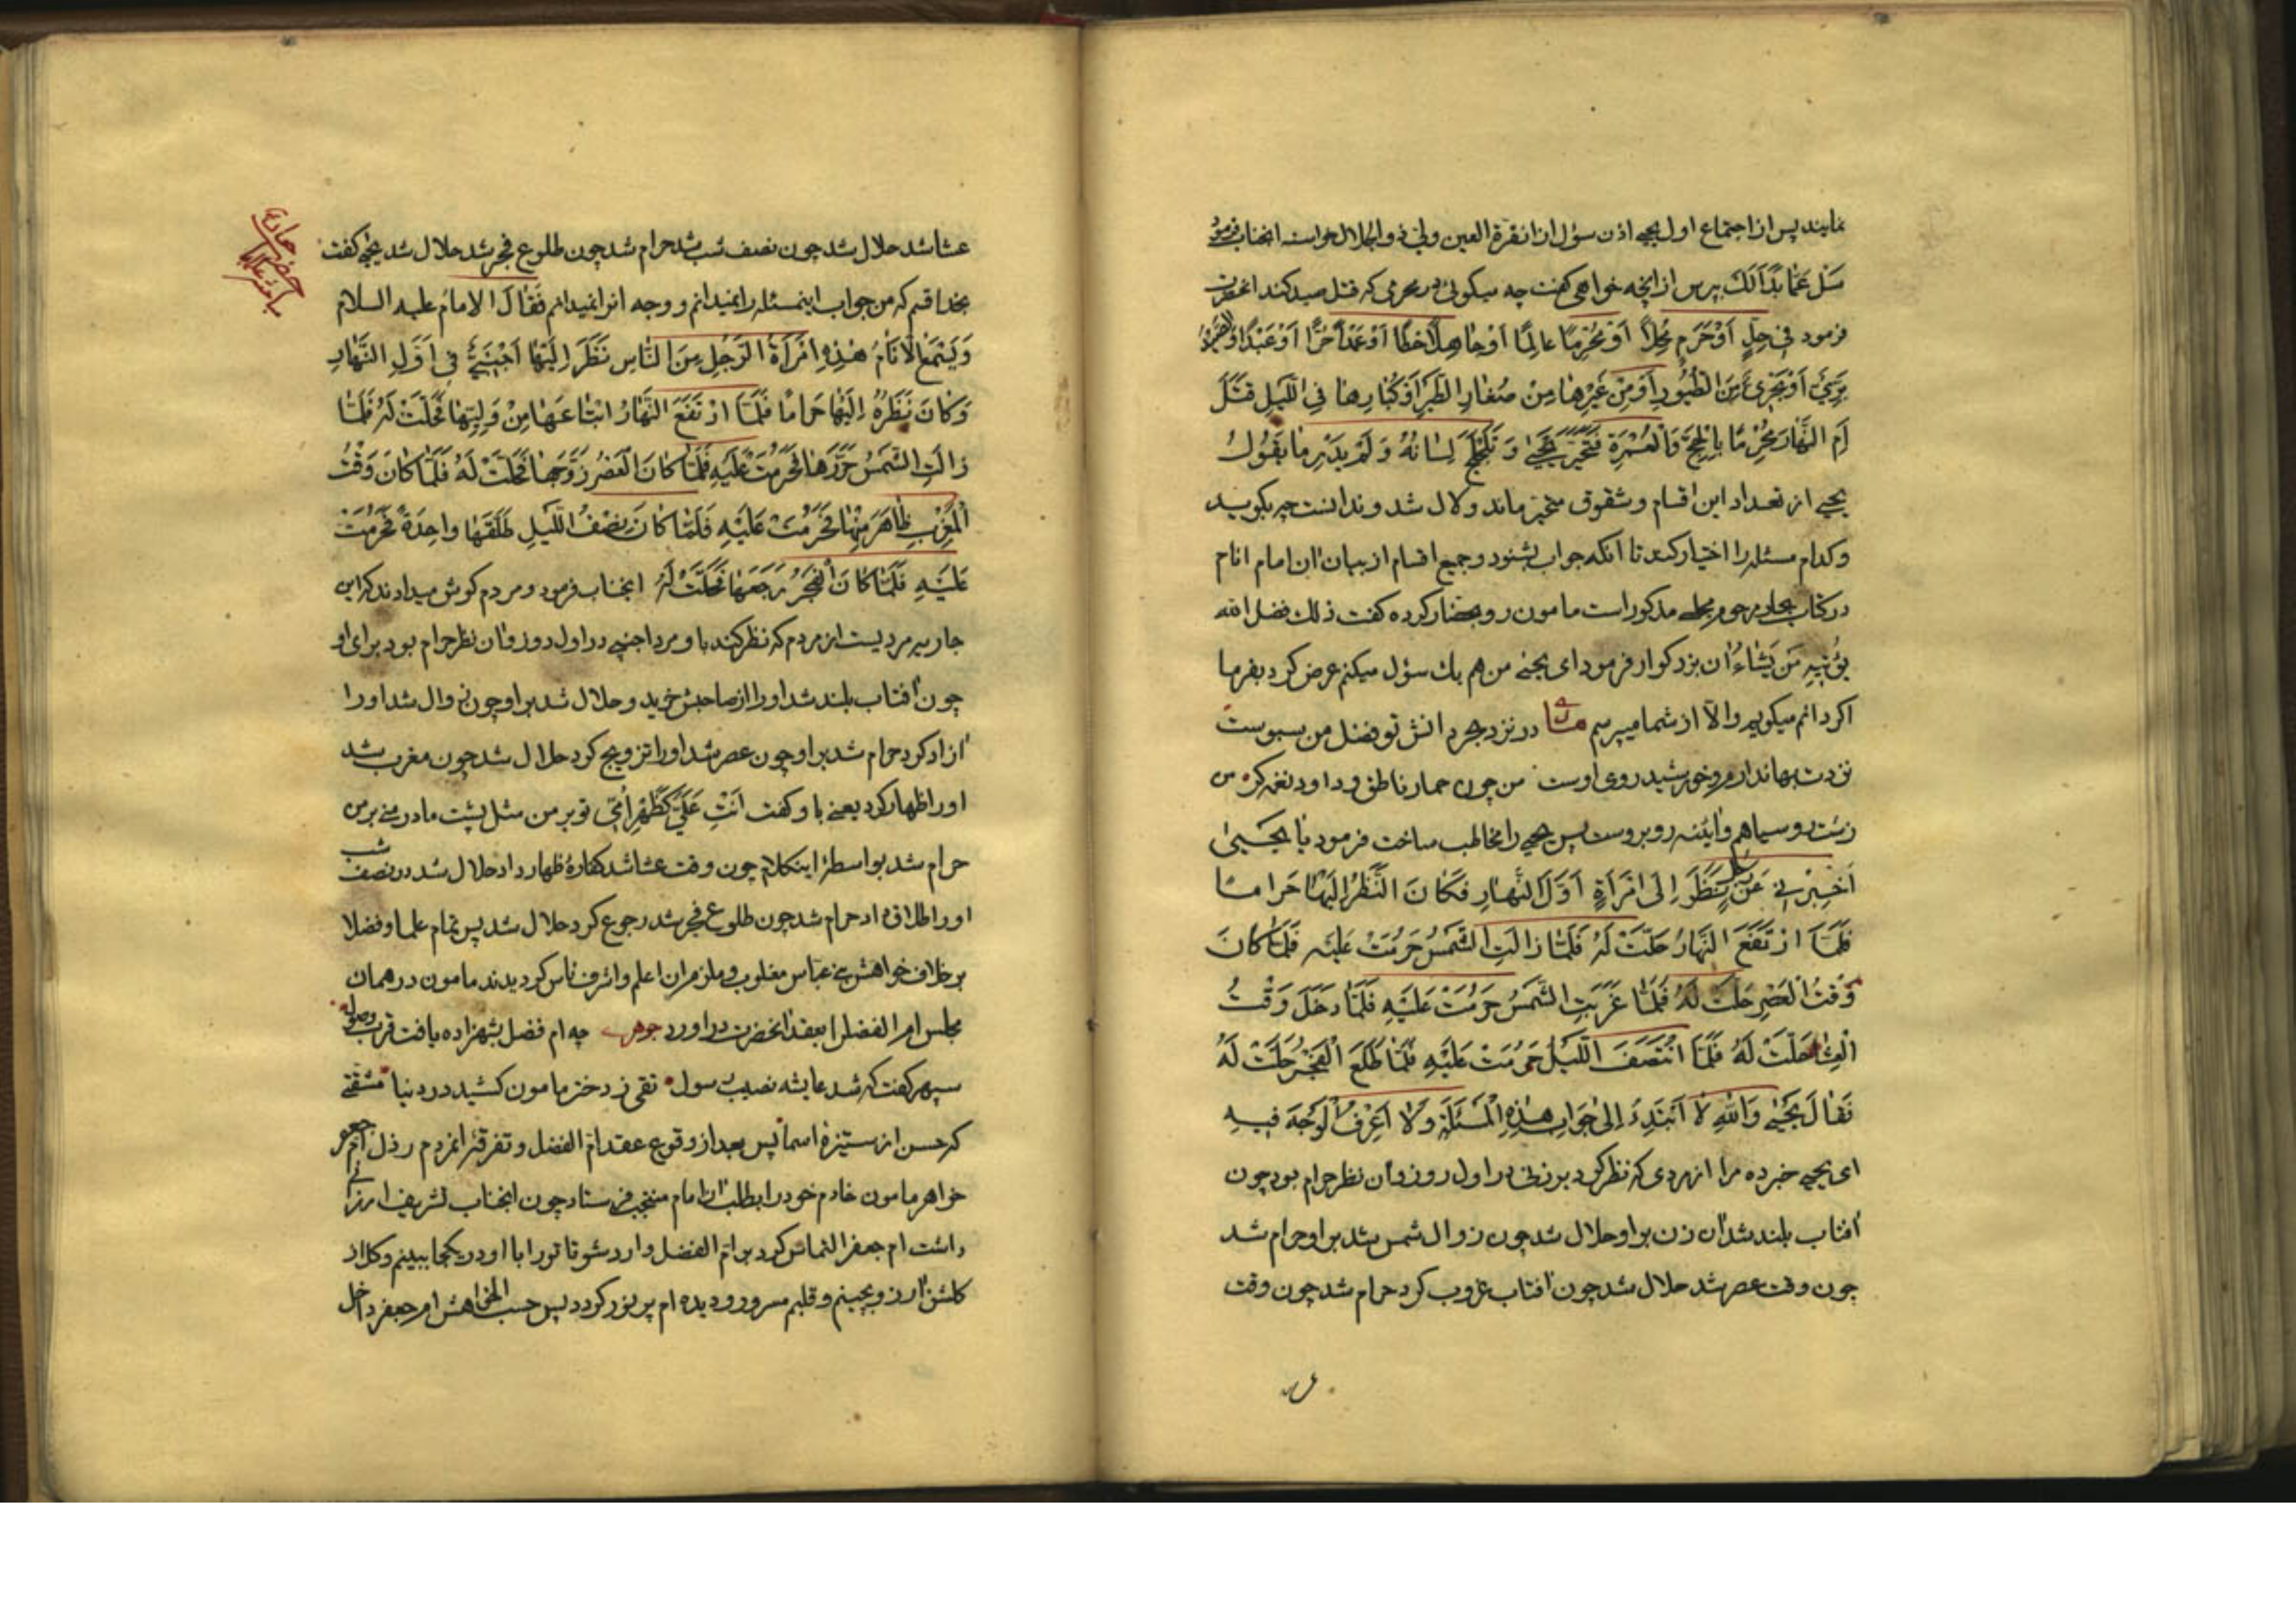 نمایند پس از اجتماع اول یحیی اذن سؤل ازان قرة العین ولی ذو الجلال خواسته انجناب فرمود
سَل عَمّا بَدَا لَكَ بپرس از انچه خواهی کفت چه میکوئی در محرمی که قتل صید کند انحضرت
فرمود فی حِلٍّ اَوْ حَرَمٍ مُحِلّاً اَوْ مُحْرِمًا عالِمًا اَوْ جاهِلاً خَطَأً اَوْ عَمْداً حُرًّا اَوْ عَبْدًا
مُبْدِئٍ اَوْ مِنَ الطُّیُورِ اَوْ مِنْ غَیْرِها مِنْ صِغارِ الطَّیْرِ اَوْ کُبّارِها فِی اللَّیْلِ قَتَلَ
اَمِ النَّهارِ مُحْرِمًا بِالْحَجِّ وَالْعُمْرَةِ فَتَحَیَّرَ یَحْیی وَ تَلَجْلَجَ لِسانُهُ وَ لَمْ یَدْرِ ما یَقُولُ
یحیی از تعداد این اقسام و شقوق متحیر ماند و لال شد و ندانست چه بکوید
و کدام مسئله را اختیار کند تا آنکه جواب بشنود و جمیع اقسام از بیان ان امام انام
در کتاب بحار مرحوم مجلسی مذکور است مامون رو بحضار کرده کفت ذلك فضل الله
یؤتیهِ مَنْ یَشاءُ ان بزرکوار فرمود ای یحیی من هم یك سؤل میکنم عرض کرد بفرما
اکر دانم میکویم والّا از شما میپرسم در نزد بحر دانش تو فضل من سبوست
نزدت بها ندارد مه و خورشید روی اوست من چون حمار ناطق و داود نغمه کر من
زشت رو سیاهم و ائینه روبروست پس یحیی را مخاطب ساخت فرمود یا یَحْییٰ
اَخْبِرْنی عَنْ رَجُلٍ نَظَرَ اِلَی امْرَأَةٍ اَوَّلَ النَّهارِ فَکانَ النَّظَرُ اِلَیْها حَرامًا
فَلَمَّا ارْتَفَعَ النَّهارُ حَلَّتْ لَهُ فَلَمّا زالَتِ الشَّمْسُ حَرُمَتْ عَلَیْهِ فَلَمّا کانَ
وَقْتُ الْعَصْرِ حَلَّتْ لَهُ فَلَمّا غَرَبَتِ الشَّمْسُ حَرُمَتْ عَلَیْهِ فَلَمّا دَخَلَ وَقْتُ
الْعِشاءِ حَلَّتْ لَهُ فَلَمَّا انْتَصَفَ اللَّیْلُ حَرُمَتْ عَلَیْهِ فَلَمّا طَلَعَ الْفَجْرُ حَلَّتْ لَهُ
فَقالَ یَحْیی وَاللهِ لا اَهْتَدِی اِلی جَوابِ هذِهِ الْمَسْئَلَةِ وَلا اَعْرِفُ الْوَجْهَ فِیهِ
ای یحیی خبر ده مرا از مردی که نظر کرد بر زنی در اول روز و ان نظر حرام بود چون
افتاب بلند شد ان زن بر او حلال شد چون زوال شمس شد بر او حرام شد
چون وقت عصر شد حلال شد چون افتاب غروب کرد حرام شد چون وقت
عشا شد حلال شد چون نصف شب شد حرام شد چون طلوع فجر شد حلال شد یحیی کفت
بخدا قسم که من جواب اینمسئله را نمیدانم و وجه انرا نمیدانم فَقالَ الامام علیه السلام
وَ یَسْمَعُ الانامُ هٰذِهِ امْرَأَةُ الرَّجُلِ مِنَ النّاسِ نَظَرَ اِلَیْها اَجْنَبِیٌّ فی اَوَّلِ النَّهارِ
وَ کانَ نَظَرُهُ اِلَیْها حَرامًا فَلَمَّا ارْتَفَعَ النَّهارُ ابْتاعَها مِنْ وَلِیِّها فَحَلَّتْ لَهُ فَلَمّا
زالَتِ الشَّمْسُ حَرَّرَها فَحَرُمَتْ عَلَیْهِ فَلَمّا کانَ الْعَصْرُ زَوَّجَها فَحَلَّتْ لَهُ فَلَمّا کانَ وَقْتُ
الْمَغْرِبِ ظاهَرَ مِنْها فَحَرُمَتْ عَلَیْهِ فَلَمّا کانَ نِصْفُ اللَّیْلِ طَلَّقَها واحِدَةً فَحَرُمَتْ
عَلَیْهِ فَلَمّا کانَ الْفَجْرُ رَجَعَها فَحَلَّتْ لَهُ انجناب فرمود و مردم کوش میدادند که این
جاریه مردیست از مردم که نظر کند باو مرد اجنبی در اول روز و ان نظر حرام بود برای او
چون افتاب بلند شد او را از صاحبش خرید و حلال شد بر او چون زوال شد او را
ازاد کرد حرام شد بر او چون عصر شد او را تزویج کرد حلال شد چون مغرب شد
او را ظهار کرد یعنی باو کفت اَنْتِ عَلَیَّ کَظَهْرِ اُمّی تو بر من مثل پشت مادر منی بر من
حرام شد بواسطۀ اینکلام چون وقت عشا شد کفارۀ ظهار داد حلال شد در نصف شب
او را طلاق داد حرام شد چون طلوع فجر شد رجوع کرد حلال شد پس تمام علما و فضلا
بر خلاف خواهش بنی عباس مغلوب و ملزم ان اعلم و اشرف ناس کردیدند مامون در همان
مجلس ام الفضل را بعقد انحضرت در اورد جوهری چه ام فضل بشهزاده یافت قرب وصول
سپهر کفت که شد عایشه نصیب رسول تقی ز دختر مامون کشید در دنیا مشقتی
که حسن از ستیزۀ اسما پس بعد از وقوع عقد امّ الفضل و تفرقۀ مردم رذل ام جعفر
خواهر مامون خادم خود را بطلب ان امام منتجب فرستاد چون انجناب تشریف ارزانی
داشت ام جعفر التماس کرد بر ام الفضل وارد شو تا تو را با او در یکجا ببینم و کل از
کلشن ارزو بچینم و قلبم مسرور و دیده ام پر نور کردد پس حسب الخواهش ام جعفر داخل